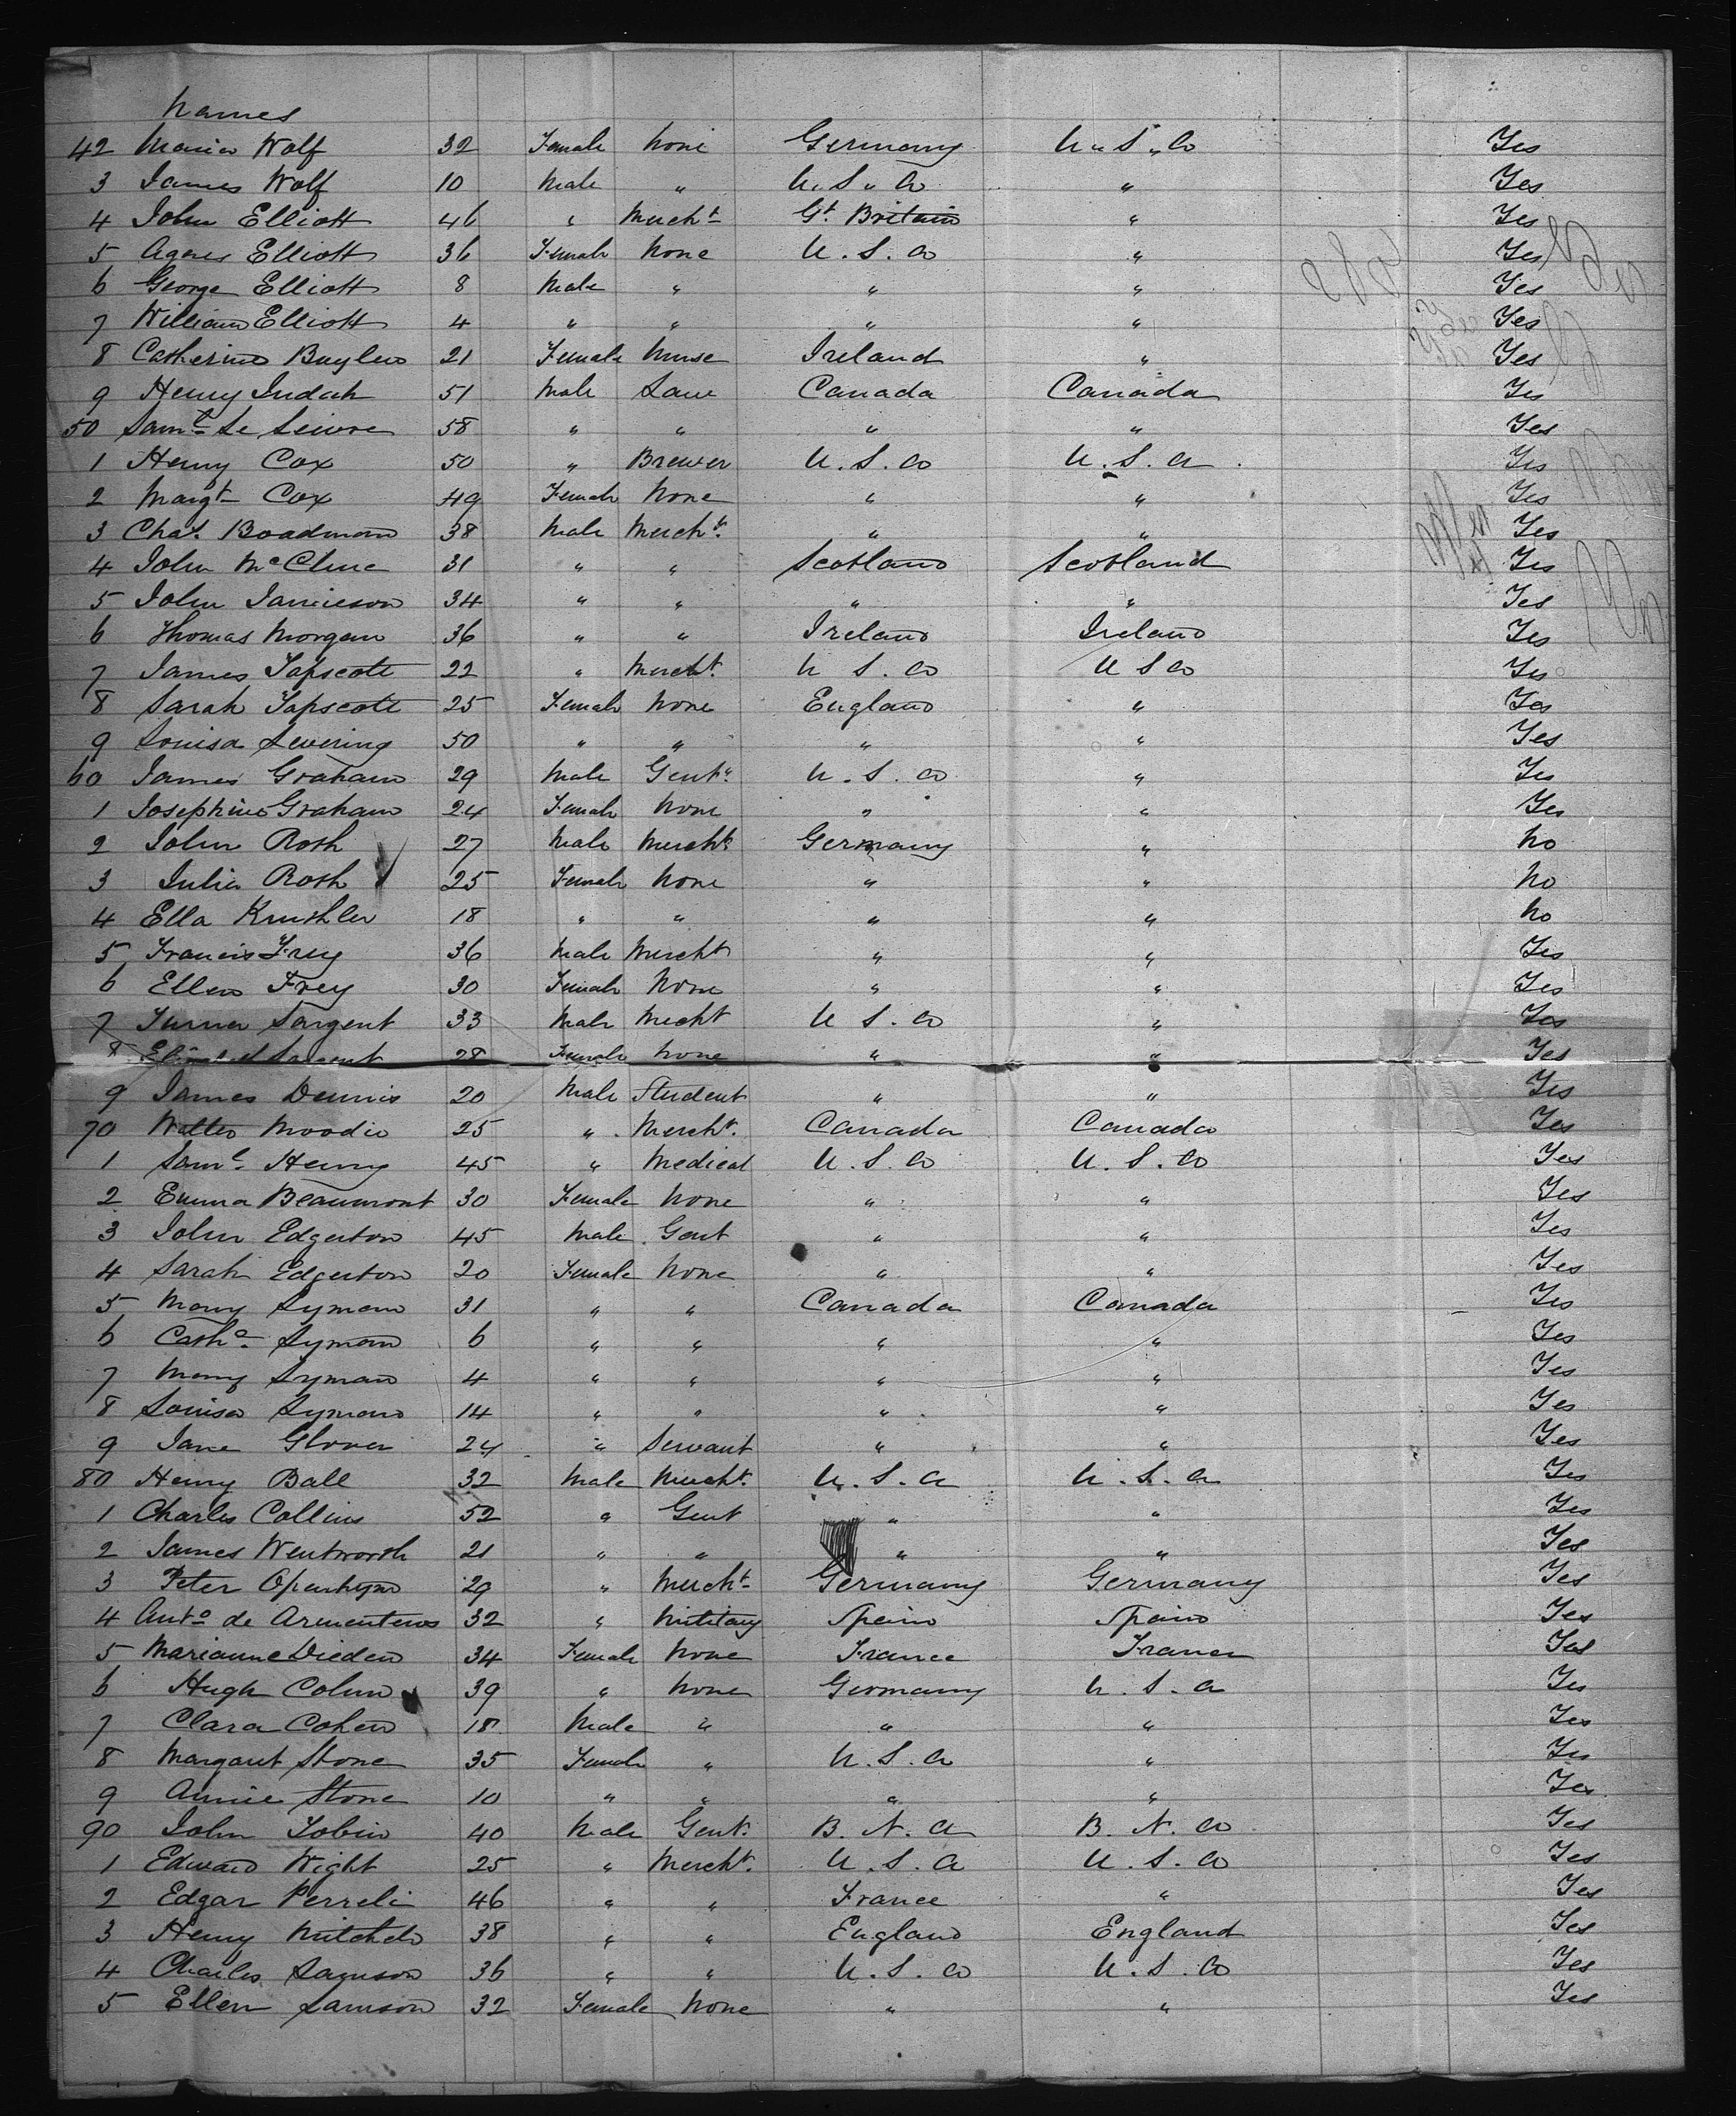 Names
42 Maria Wolf 32 Female None Germany U.S.A Yes
3 James Wolf 10 Male " U.S.A " Yes
4 John Elliott 46 " Mercht Gt. Britain " Yes
5 Agnes Elliott 36 Female None U.S.A " Yes
6 George Elliott 8 Male " " " Yes
7 William Elliott 4 " " " " Yes
8 Catherine 21 Female Nurse Ireland " Yes
9 Henry Judah 51 Male Law Canada Canada Yes
50 Saml Le Sieure 58 " " " " Yes
1 Henry Cox 50 " Brewer U.S.A U.S.A. Yes
2 Margt Cox 49 Female None " " Yes
3 Chas. Boadman 38 Male Mercht. " " Yes
4 John McClure 31 " " Scotland Scotland Yes
5 John Jamieson 34 " " " " Yes
6 Thomas Morgan 36 " " Ireland Ireland Yes
7 James Tapscott 22 " Mercht. U S. A U S A Yes
8 Sarah Tapscott 25 Female None England " Yes
9 Louisa Levering 50 " " " " Yes
60 James Graham 29 Male Gent". U.S.A " Yes
1 Josephine Graham 24 Female None " " Yes
2 John Roth 27 Male Mercht. Germany " No
3 Julia Roth 25 Female None " " No
4 Ella 18 " " " " No
5 Francis Frey 36 Male Mercht " " Yes
6 Ellen Frey 30 Female None " " Yes
7 Turner Sargent 33 Male Mercht U S. A " Yes
8 Sargent 28 Female None " " Yes
9 James Dennis 20 Male Student " " Yes
70 Walter Moodie 25 " Mercht. Canada Canada Yes
1 Saml. Henry 45 " Medical U.S.A U.S.A Yes
2 Emma Beaumont 30 Female None " " Yes
3 John Edgerton 45 Male Gent " " Yes
4 Sarah Edgerton 20 Female None " " Yes
5 Mary Lyman 31 " " Canada Canada Yes
6 Cathe. Lyman 6 " " " " Yes
7 Mary Lyman 4 " " " " Yes
8 Louisa Lyman 14 " " " " Yes
9 Jane Glover 24 " Servant " " Yes
80 Henry Ball 32 Male Mercht. U.S.A U.S.A Yes
1 Charles Collins 52 " Gent " " Yes
2 James Wentworth 21 " " " " Yes
3 Peter 29 " Mercht Germany Germany Yes
4 Anto de Armenteros 32 " Military Spain Spain Yes
5 Marianne Dieden 34 Female None France France Yes
6 Hugh Cohen 39 " None Germany U.S.A Yes
7 Clara Cohen 18 Male " " " Yes
8 Margaret Stone 35 Female " U.S.A " Yes
9 Annie Stone 10 " " " " Yes
90 John Tobin 40 Male Gent. B.N.A B.N.A Yes
1 Edward Wight 25 " Mercht. U.S.A U.S.A Yes
2 Edgar Perreli 46 " " France " Yes
3 Henry 38 " " England England Yes
4 Charles Samson 36 " " U.S.A U.S.A Yes
5 Ellen Samson 32 Female None " " Yes